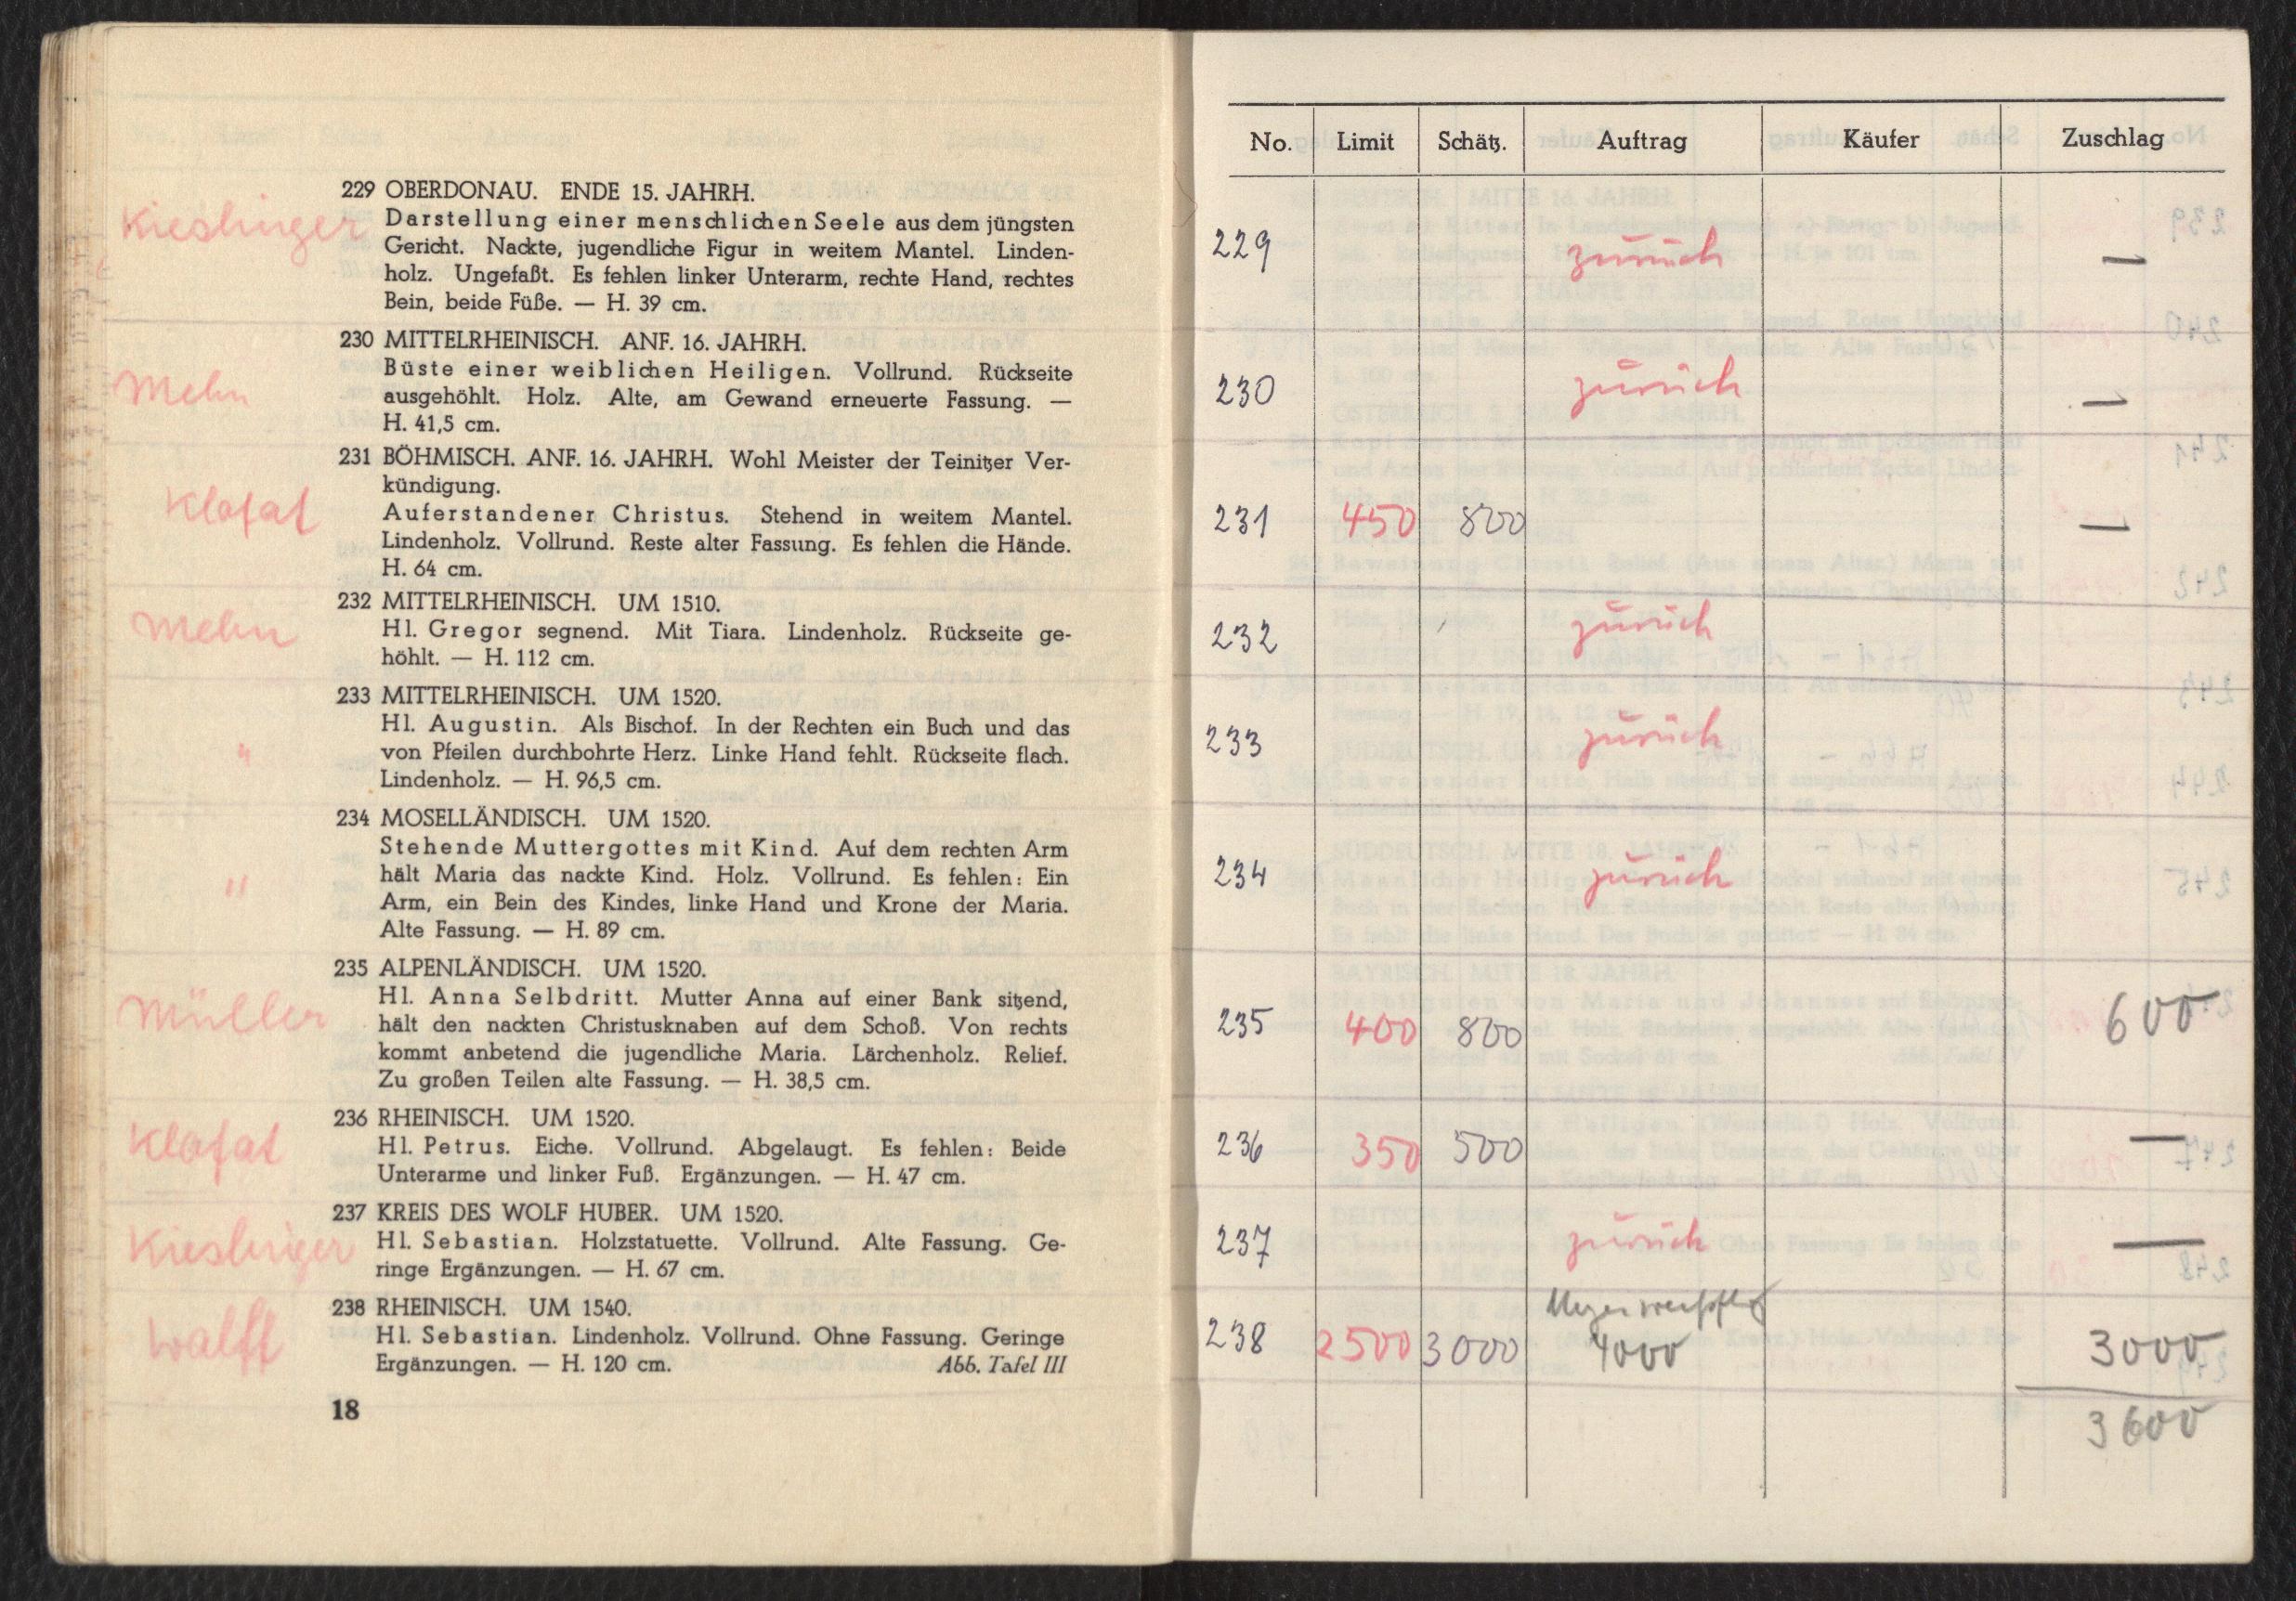 Kieslinger
229 OBERDONAU. ENDE 15. JAHRH.
Darstellung einer menschlichen Seele aus dem jüngsten
Gericht. Nackte, jugendliche Figur in weitem Mantel. Linden-
holz. Ungefaßt. Es fehlen linker Unterarm, rechte Hand, rechtes
Bein, beide Füße. — H. 39 cm.
Mehn
230 MITTELRHEINISCH. ANF. 16. JAHRH.
Büste einer weiblichen Heiligen. Vollrund. Rückseite
ausgehöhlt. Holz. Alte, am Gewand erneuerte Fassung. —
H. 41,5 cm.
Klafat
231 BÖHMISCH. ANF. 16. JAHRH. Wohl Meister der Teinitzer Ver-
kündigung.
Auferstandener Christus. Stehend in weitem Mantel.
Lindenholz. Vollrund. Reste alter Fassung. Es fehlen die Hände.
H. 64 cm.
Mehn
232 MITTELRHEINISCH. UM 1510.
Hl. Gregor segnend. Mit Tiara. Lindenholz. Rückseite ge-
höhlt. — H. 112 cm.
"
233 MITTELRHEINISCH. UM 1520.
Hl. Augustin. Als Bischof. In der Rechten ein Buch und das
von Pfeilen durchbohrte Herz. Linke Hand fehlt. Rückseite flach.
Lindenholz. — H. 96,5 cm.
"
234 MOSELLÄNDISCH. UM 1520.
Stehende Muttergottes mit Kind. Auf dem rechten Arm
hält Maria das nackte Kind. Holz. Vollrund. Es fehlen: Ein
Arm, ein Bein des Kindes, linke Hand und Krone der Maria.
Alte Fassung. — H. 89 cm.
Müller
235 ALPENLÄNDISCH. UM 1520.
Hl. Anna Selbdritt. Mutter Anna auf einer Bank sitzend,
hält den nackten Christusknaben auf dem Schoß. Von rechts
kommt anbetend die jugendliche Maria. Lärchenholz. Relief.
Zu großen Teilen alte Fassung. — H. 38,5 cm.
Klafat
236 RHEINISCH. UM 1520.
Hl. Petrus. Eiche. Vollrund. Abgelaugt. Es fehlen: Beide
Unterarme und linker Fuß. Ergänzungen. — H. 47 cm.
Kieslinger
237 KREIS DES WOLF HUBER. UM 1520.
Hl. Sebastian. Holzstatuette. Vollrund. Alte Fassung. Ge-
ringe Ergänzungen. — H. 67 cm.
Walff
238 RHEINISCH. UM 1540.
Hl. Sebastian. Lindenholz. Vollrund. Ohne Fassung. Geringe
Ergänzungen. — H. 120 cm. Abb. Tafel III
18
No. Limit Schätz. Auftrag Käufer Zuschlag
229 zurück —
230 zurück —
231 450 800 —
232 zurück
233 zurück
234 zurück
235 400 800 600
236 350 500 —
237 zurück —
238 2500 3000 4000 3000
3600